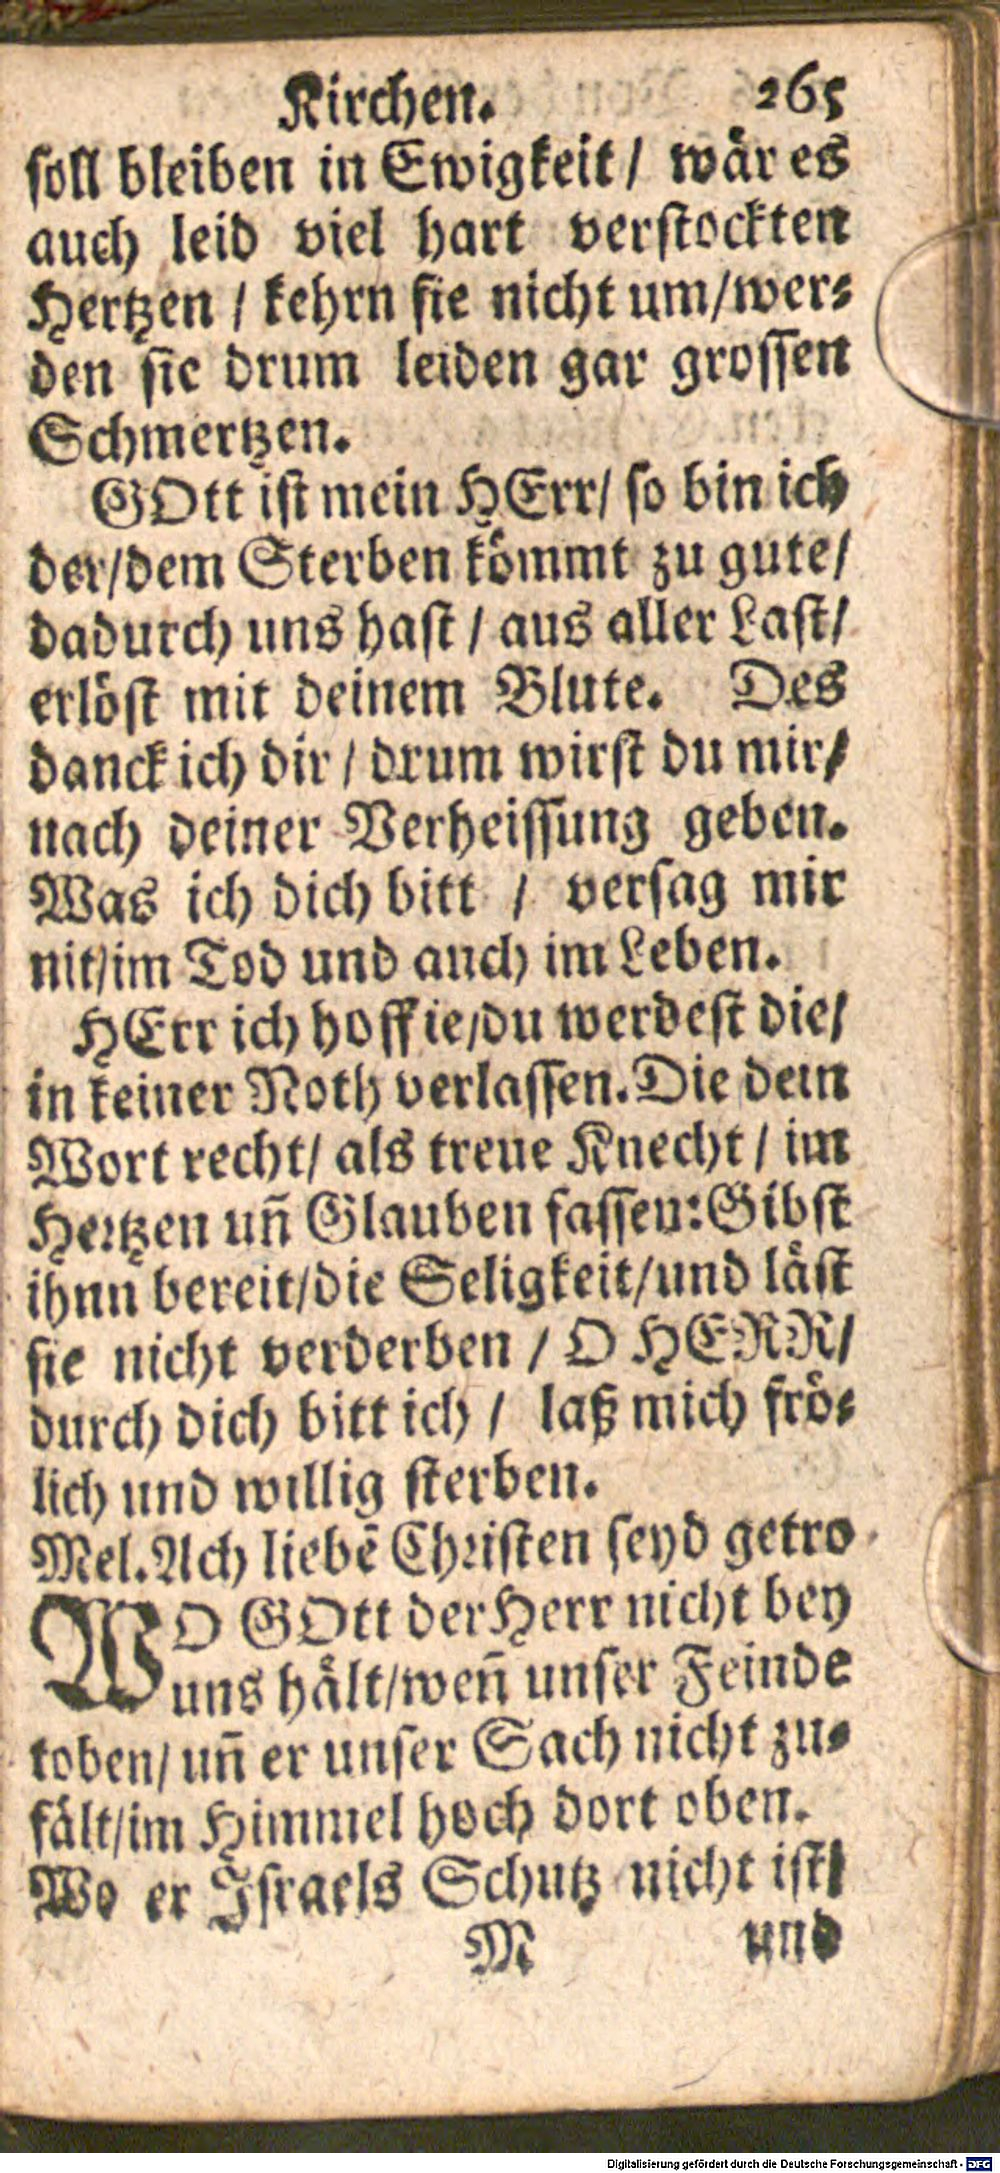 Kirchen. 265
soll bleiben in Ewigkeit / wär es
auch leid viel hart verstockten
Hertzen / kehrn sie nicht um/wer-
den sie drum leiden gar grossen
Schmertzen.
GOtt ist mein HErr/ so bin ich
der/dem Sterben kömmt zu gute/
dadurch uns hast / aus aller Last/
erlöst mit deinem Blute. Des
danck ich dir / drum wirst du mir/
nach deiner Verheissung geben.
Was ich dich bitt / versag mir
nit/im Tod und auch im Leben.
HErr ich hoff ie/du werdest die/
in keiner Noth verlassen. Die dein
Wort recht/ als treue Knecht / im
Hertzen uñ Glauben fassen: Gibst
ihnn bereit/die Seligkeit/und läst
sie nicht verderben / O HERR/
durch dich bitt ich / laß mich frö-
lich und willig sterben.
Mel. Ach liebẽ Christen seyd getro
WO GOtt der Herr nicht bey
uns hält/weñ unser Feinde
toben/ uñ er unser Sach nicht zu-
fält/im Himmel hoch dort oben.
Wo er Israels Schutz nicht ist/
M und
Digitalisierung gefördert durch die Deutsche Forschungsgemeinschaft - DFG